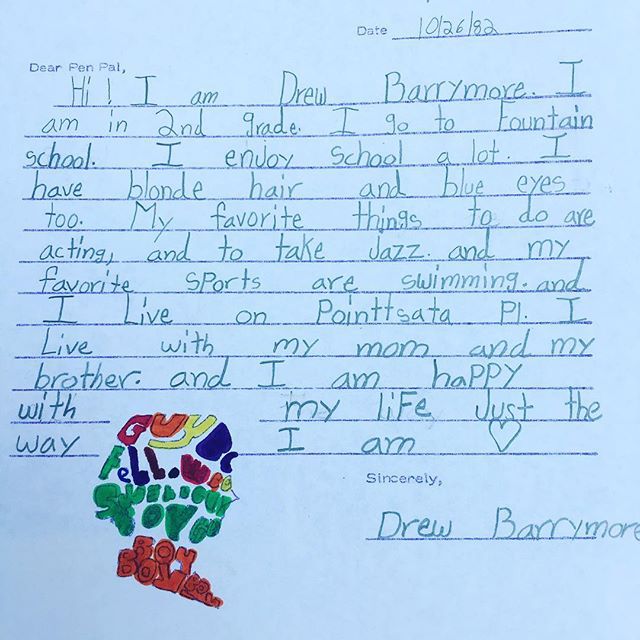 Date 10/26/82
Dear Pen Pal,
Hi! I am Drew Barrymore. I
am in 2nd grade. I go to Fountain
school. I enjoy school a lot. I
have blonde hair and blue eyes
too. My favorite things to do are
acting, and to take Jazz. and my
favorite sports are swimming. and
I Live on Pointtsata Pl. I
Live with my mom and my
brother. and I am happy
with my life Just the
way I am
Sincerely,
Drew Barrymore